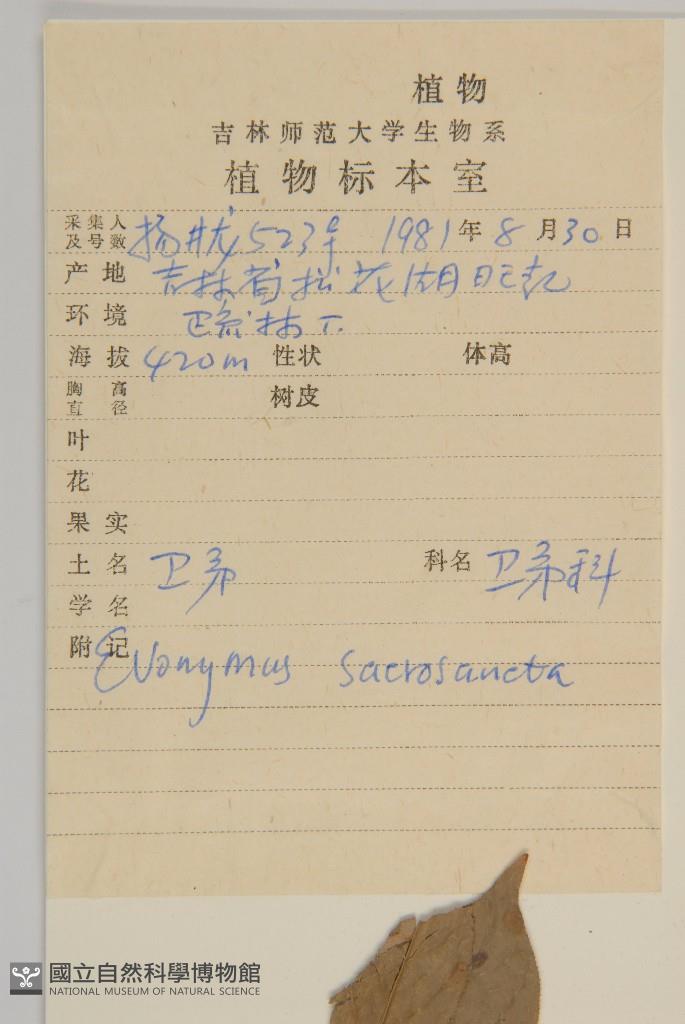 植物
吉林师范大学生物系
植物标本室
采集人及号数 523 1981年8月30日
产地 吉林省松花湖
环境 林下
海拔 420m 性状 体高
胸高直径 树皮
叶
花
果实
土名 卫矛 科名 卫矛科
学名
附记
Evonymus sacrosancta
國立自然科學博物館
NATIONAL MUSEUM OF NATURAL SCIENCE